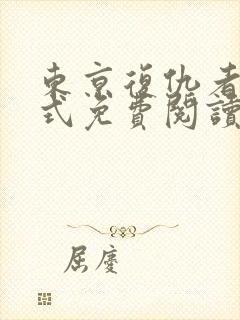 東京復仇者
式免費閱讀
屈慶